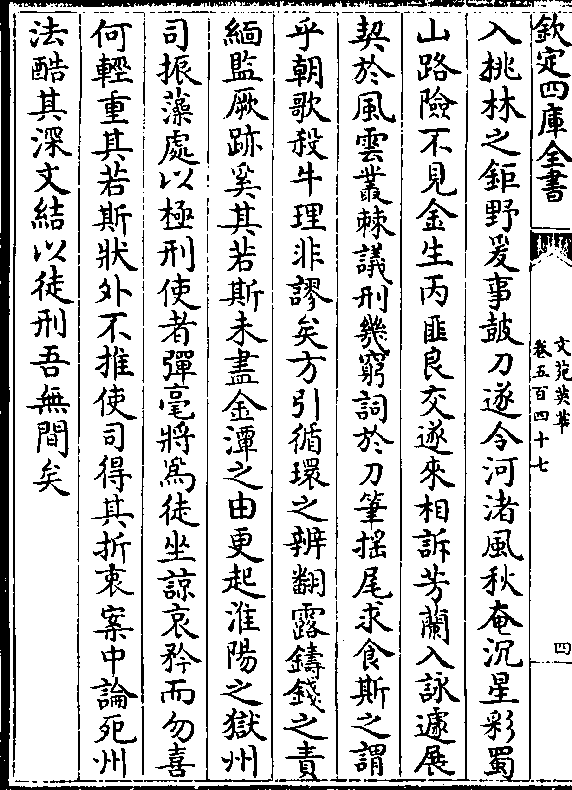 欽定四庫全書
文苑英華
卷五百四十七
四
入挑林之鉅野爰事鼓刀遂令河渚風秋奄沉星彩蜀
山路險不見金生丙匪良交遂來相訴芳蘭入詠遽展
契於風雲叢棘議刑幾窮詞於刀筆揺尾求食斯之謂
乎朝歌殺牛理非謬矣方引循環之辨翻露鑄錢之責
緬監厥跡奚其若斯未盡金潭之由更起淮陽之獄州
司振藻處以極刑使者彈毫將為徒坐諒哀矜而勿喜
何輕重其若斯狀外不推使司得其折衷案中論死州
法酷其深文結以徒刑吾無間矣